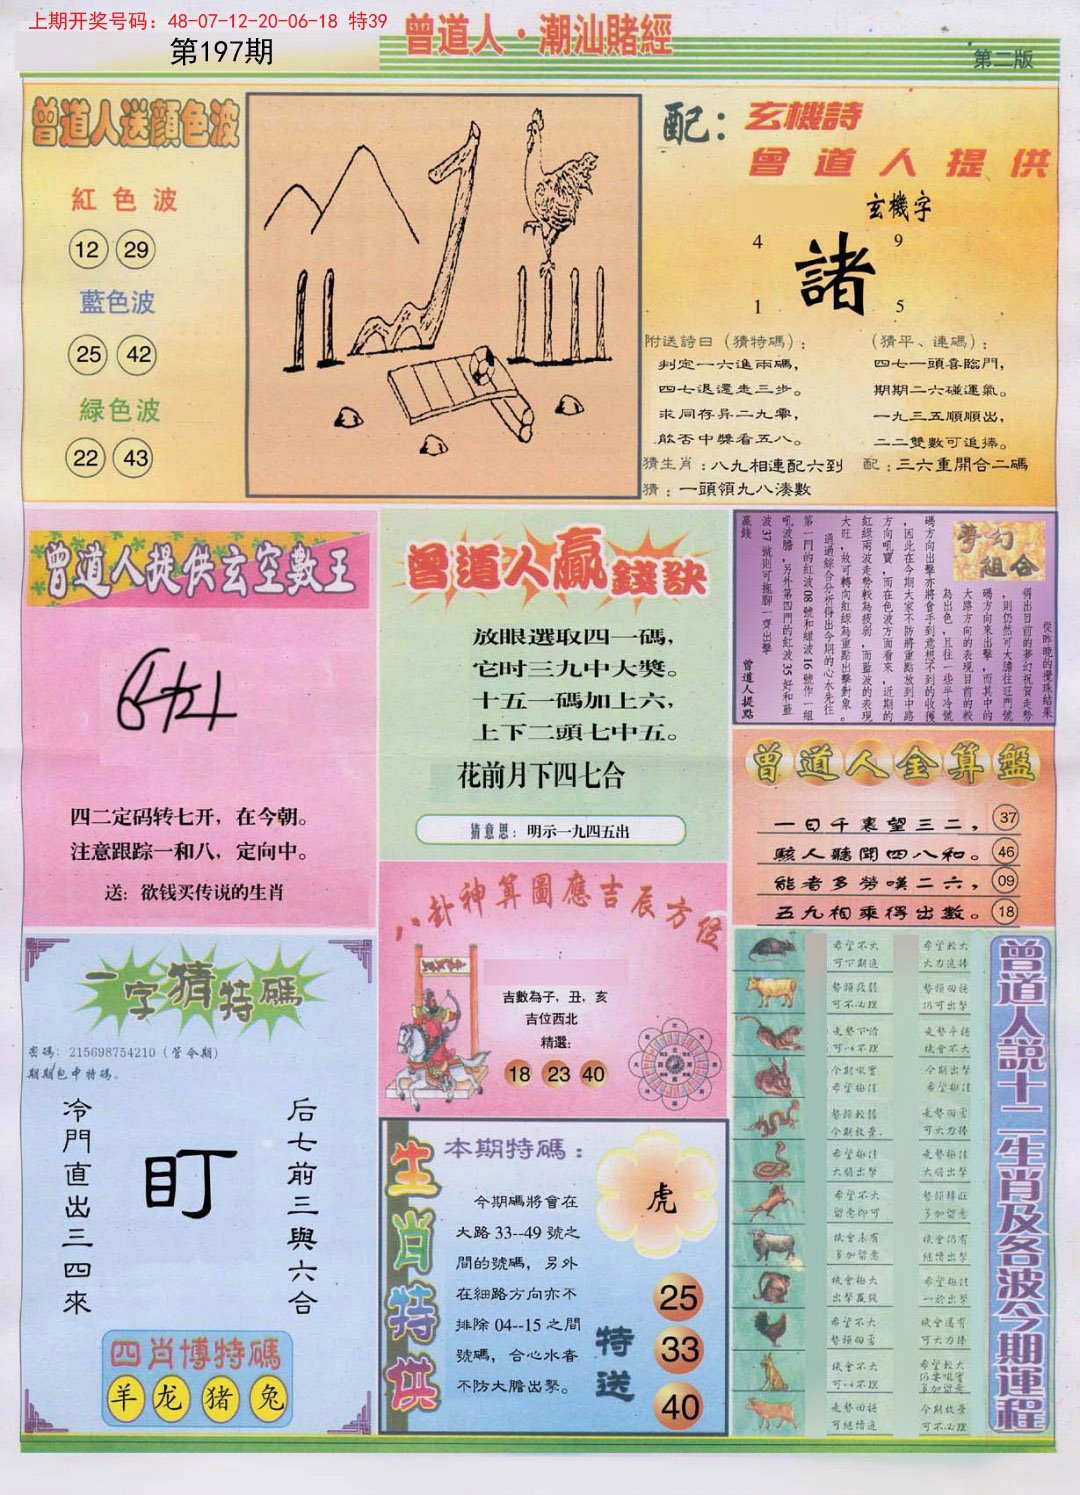 上期开奖号码：48-07-12-20-06-18 特39
第197期
曾道人·潮汕賭經
第二版
曾道人送顏色波
紅色波
12 29
藍色波
25 42
緑色波
22 43
配：玄機詩
曾道人提供
玄機字
4 9
諸
1 5
附送詩曰（猜特碼）：
判定一六進兩碼，
四七退還走三步。
求同存异二九零，
能否中獎看五八。
猜生肖：八九相連配六到
猜：一頭領九八湊數
（猜平、連碼）：
四七一頭喜臨門，
期期二六碰運氣。
一九三五順順出，
二二雙數可追捧。
配：三六重開合二碼
曾道人提供玄空數王
四二定码转七开，在今朝。
注意跟踪一和八，定向中。
送：欲钱买传说的生肖
曾道人贏錢訣
放眼選取四一碼，
它时三九中大獎。
十五一碼加上六，
上下二頭七中五。
花前月下四七合
猜意思：明示一九四五出
夢幻組合
從昨晚的攪珠結果
得出目前的夢幻祝賀走勢
，則仍然可大膽往旺門號
碼方向來出擊，而其中的
大路方向的表現目前的較
為出色，且往一些半冷號
碼方向出擊亦將會手到意想不到的收獲
，因此在今期大家不防將重點放到中路
方向吼寶，而在色波方面看來，近期的
紅緑兩波走勢較為疲弱，而藍波的表現
大旺，故可轉向紅緑為重點出擊對象。
通過綜合分析得出今期的心水先往
第一門的紅波08號和緑波16號作一組
吼波膽，另外第四門的紅波35好和藍
波37號則可拖腳一齊出擊
贏錢
曾道人提點
曾道人金算盤
一日千裏望三二， 37
駭人聽聞四八和。 46
能者多勞嘆二六， 09
五九相乘得出數。 18
八卦神算圖應吉辰方位
吉數為子，丑，亥
吉位西北
精選：
18 23 40
一字猜特碼
密碼：215698754210（管今期）
期期包中特碼、
冷門直出三四來
盯
后七前三與六合
四肖博特碼
羊 龙 猪 兔
生肖特供
本期特碼：
今期碼將會在
大路33--49號之
間的號碼，另外
在細路方向亦不
排除04--15之間
號碼，合心水春
不防大膽出擊。
虎
特送
25
33
40
曾道人説十二生肖及各波今期運程
希望不大 希望較大
可下期追 大力追捧
勢頭疲弱 勢頭回揚
可不必理 仍可出擊
走勢下滑 走勢平穩
可以不理 機會不大
今期吼實 今期出擊
希望極佳 希望極佳
勢頭較弱 走勢回勇
今期放棄 可大力捧
希望極佳 走勢極佳
大膽出擊 大膽出擊
希望不大 勢頭轉旺
留意即可 多加留意
機會未有 機會仍有
多加留意 繼續出擊
機會極大 希望極佳
出擊贏錢 一於出擊
希望不大 機會還有
勢頭回勇 可大力捧
機會不大 希望較大
可以不理 仍要吼實
多加留意
走勢回穩 今期放棄
可繼續追 可不必理